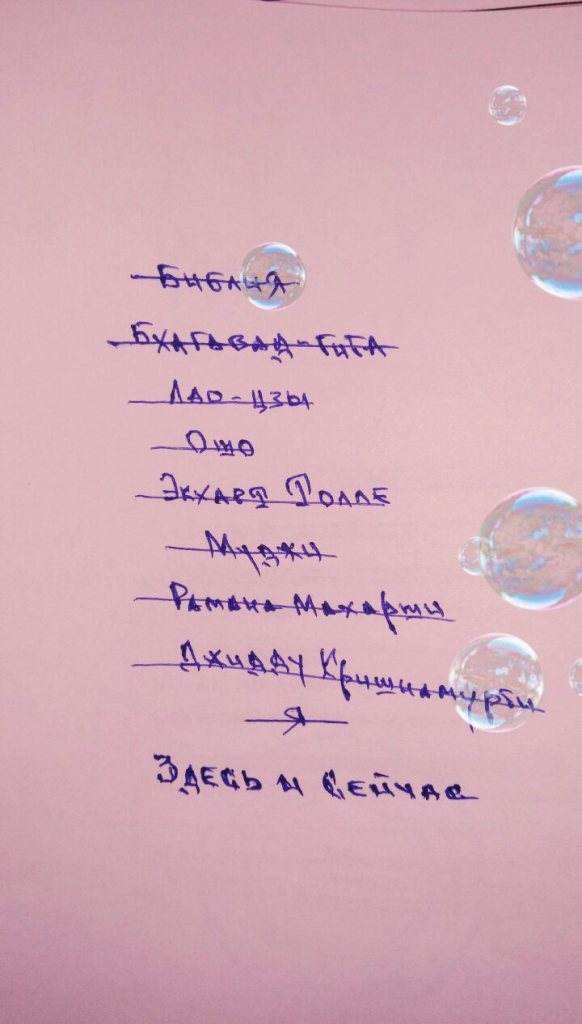 Библия
Бхагавад-Гита
Лао-цзы
Ошо
Экхарт Толле
Муджи
Рамана Махарши
Джидду Кришнамурти
Я
Здесь и Сейчас